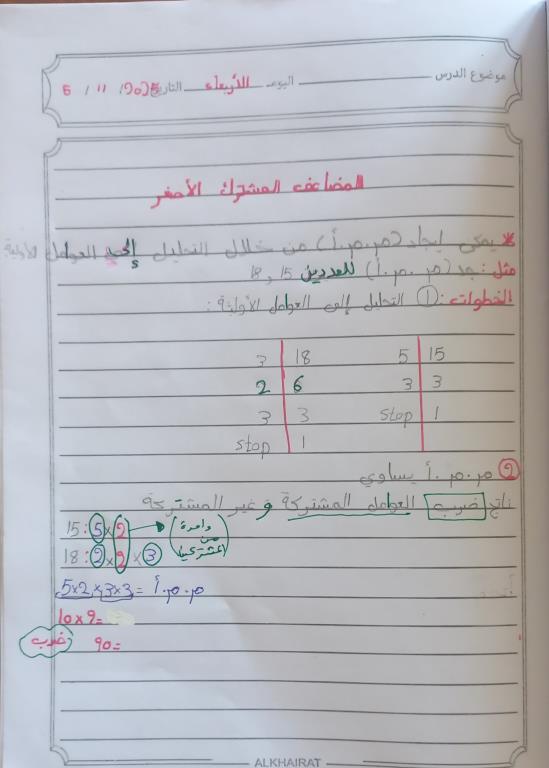 موضوع الدرس اليوم الأربعاء التاريخ 2025 / 11 / 5
المضاعف المشترك الأصغر
* يمكن إيجاد (م.م.أ) من خلال التحليل إلى العوامل الأولية
مثل: جد (م.م.أ) للعددين 15 , 18
الخطوات: ① التحليل إلى العوامل الأولية:
3 | 18 5 | 15
2 | 6 3 | 3
3 | 3 stop | 1
stop | 1
② م.م.أ يساوي
ناتج ضرب العوامل المشتركة و غير المشتركة
15 : 5 × 2 (واحدة من
18 : 2 × 2 × 3
5×2 × 3×3 = م.م.أ
10 × 9 =
90 = ضرب
ALKHAIRAT